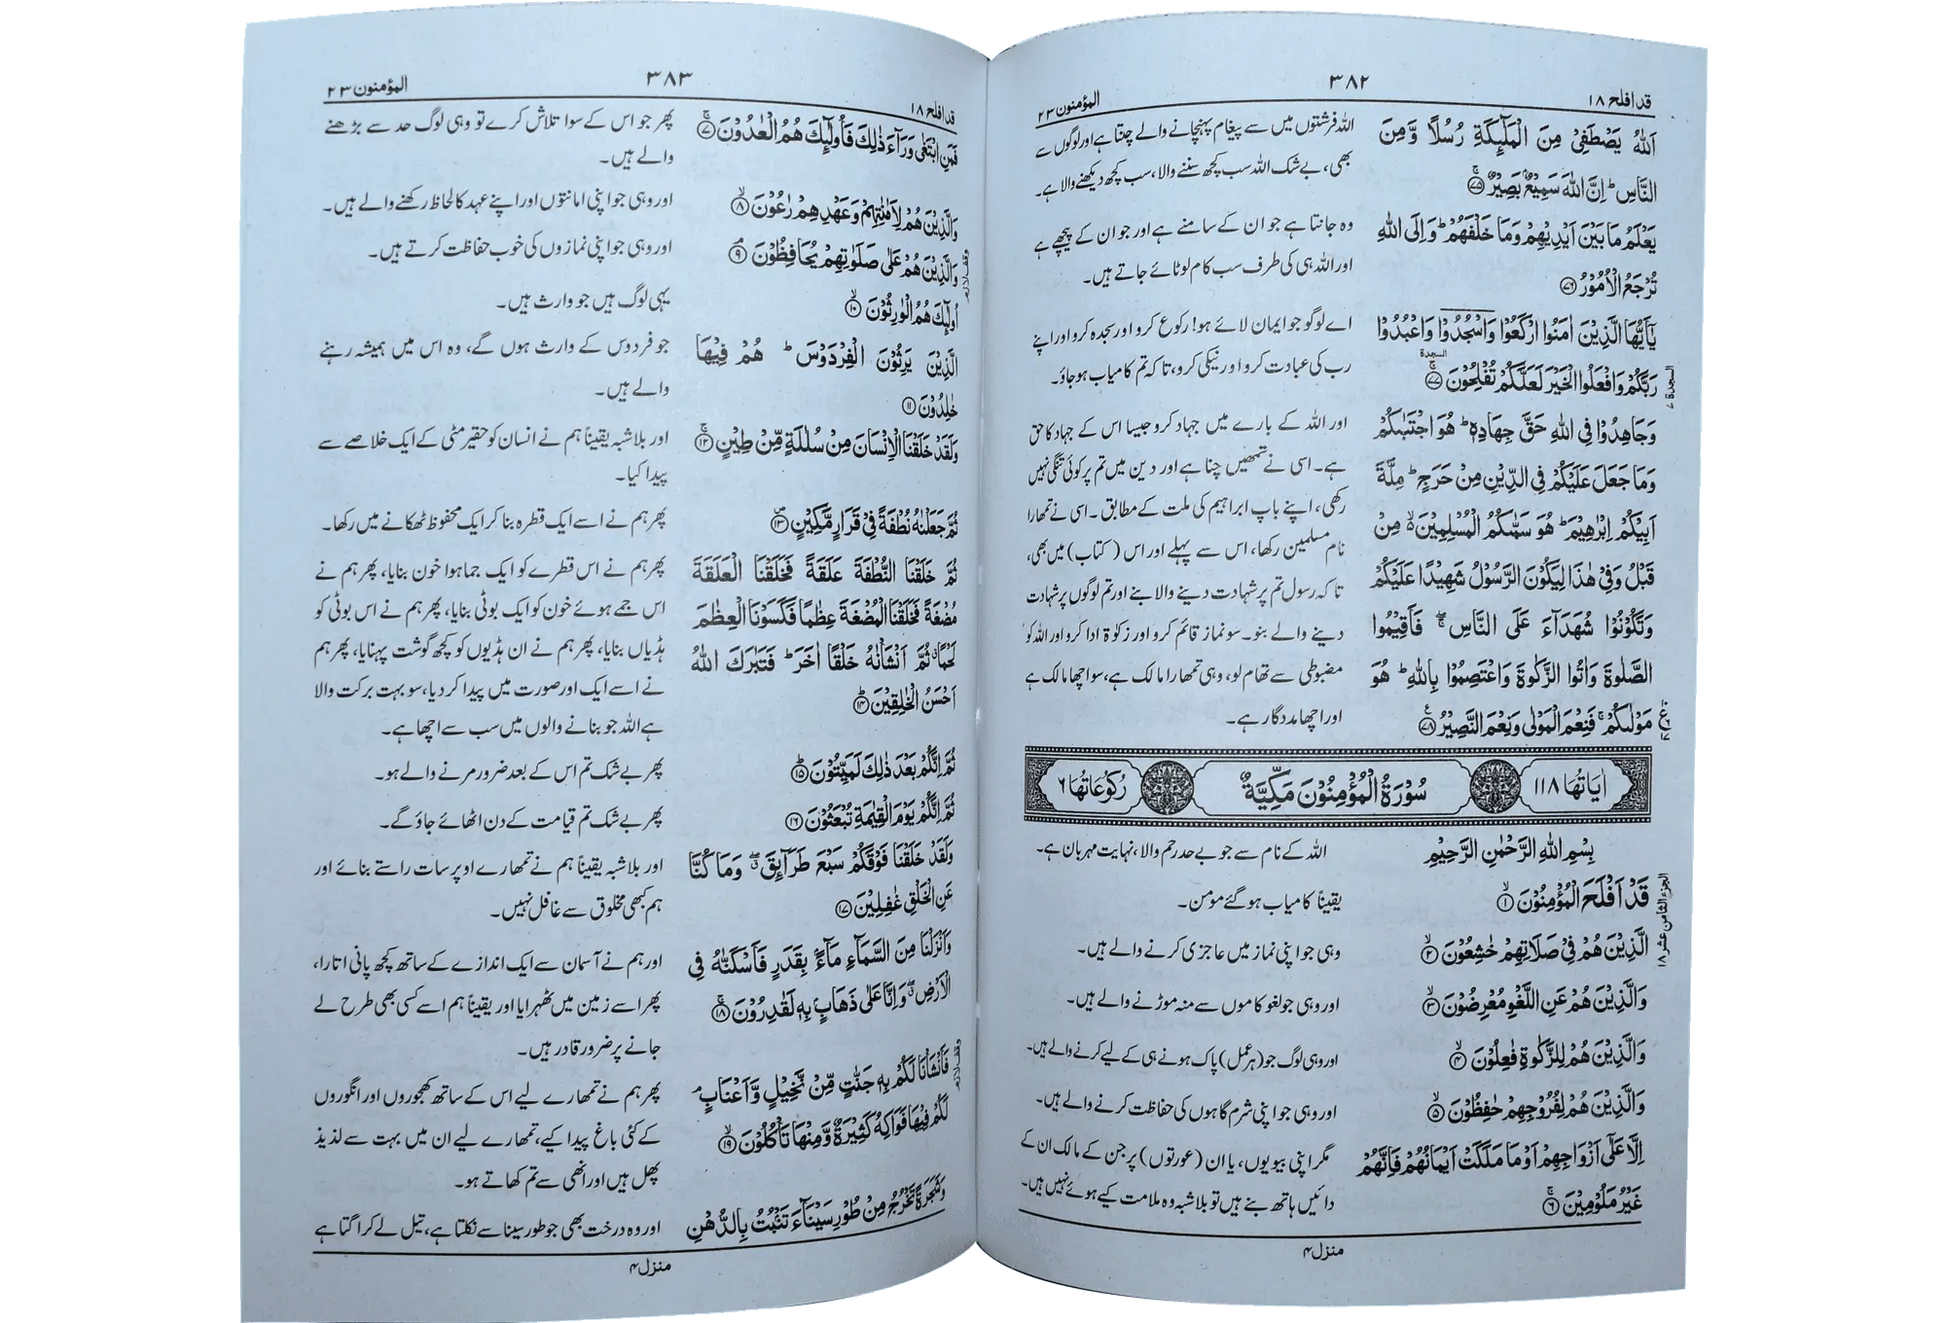 قد افلح ۱۸
۳۸۲
المؤمنون ۲۳
اَللّٰهُ يَصْطَفِيْ مِنَ الْمَلٰٓئِكَةِ رُسُلًا وَّمِنَ
النَّاسِ ؕ اِنَّ اللّٰهَ سَمِيْعٌۢ بَصِيْرٌ ۚ﴿۷۵﴾
يَعْلَمُ مَا بَيْنَ اَيْدِيْهِمْ وَمَا خَلْفَهُمْ ؕ وَاِلَى اللّٰهِ
تُرْجَعُ الْاُمُوْرُ ﴿۷۶﴾
يٰٓاَيُّهَا الَّذِيْنَ اٰمَنُوا ارْكَعُوْا وَاسْجُدُوْا وَاعْبُدُوْا
رَبَّكُمْ وَافْعَلُوا الْخَيْرَ لَعَلَّكُمْ تُفْلِحُوْنَ ۩ۚ﴿۷۷﴾
السجدة
السجدة ۷
وَجَاهِدُوْا فِي اللّٰهِ حَقَّ جِهَادِهٖ ؕ هُوَ اجْتَبٰىكُمْ
وَمَا جَعَلَ عَلَيْكُمْ فِي الدِّيْنِ مِنْ حَرَجٍ ؕ مِلَّةَ
اَبِيْكُمْ اِبْرٰهِيْمَ ؕ هُوَ سَمّٰىكُمُ الْمُسْلِمِيْنَ ۙ مِنْ
قَبْلُ وَفِيْ هٰذَا لِيَكُوْنَ الرَّسُوْلُ شَهِيْدًا عَلَيْكُمْ
وَتَكُوْنُوْا شُهَدَآءَ عَلَى النَّاسِ ۚۖ فَاَقِيْمُوا
الصَّلٰوةَ وَاٰتُوا الزَّكٰوةَ وَاعْتَصِمُوْا بِاللّٰهِ ؕ هُوَ
مَوْلٰىكُمْ ۚ فَنِعْمَ الْمَوْلٰى وَنِعْمَ النَّصِيْرُ ﴿۷۸﴾
اللہ فرشتوں میں سے پیغام پہنچانے والے چنتا ہے اور لوگوں سے
بھی، بے شک اللہ سب کچھ سننے والا، سب کچھ دیکھنے والا ہے۔
وہ جانتا ہے جو ان کے سامنے ہے اور جو ان کے پیچھے ہے
اور اللہ ہی کی طرف سب کام لوٹائے جاتے ہیں۔
اے لوگو جو ایمان لائے ہو! رکوع کرو اور سجدہ کرو اور اپنے
رب کی عبادت کرو اور نیکی کرو، تاکہ تم کامیاب ہو جاؤ۔
اور اللہ کے بارے میں جہاد کرو جیسا اس کے جہاد کا حق
ہے۔ اسی نے تمھیں چنا ہے اور دین میں تم پر کوئی تنگی نہیں
رکھی، اپنے باپ ابراہیم کی ملت کے مطابق۔ اسی نے تمھارا
نام مسلمین رکھا، اس سے پہلے اور اس (کتاب) میں بھی،
تاکہ رسول تم پر شہادت دینے والا بنے اور تم لوگوں پر شہادت
دینے والے بنو۔ سو نماز قائم کرو اور زکوٰۃ ادا کرو اور اللہ کو
مضبوطی سے تھام لو، وہی تمھارا مالک ہے، سو اچھا مالک ہے
اور اچھا مددگار ہے۔
اٰيَاتُهَا ۱۱۸
سُوْرَةُ الْمُؤْمِنُوْنَ مَكِّيَّةٌ
رُكُوْعَاتُهَا ۶
بِسْمِ اللّٰهِ الرَّحْمٰنِ الرَّحِيْمِ
قَدْ اَفْلَحَ الْمُؤْمِنُوْنَ ۙ﴿۱﴾
الجزء الثامن عشر ۱۸
الَّذِيْنَ هُمْ فِيْ صَلَاتِهِمْ خٰشِعُوْنَ ۙ﴿۲﴾
وَالَّذِيْنَ هُمْ عَنِ اللَّغْوِ مُعْرِضُوْنَ ۙ﴿۳﴾
وَالَّذِيْنَ هُمْ لِلزَّكٰوةِ فٰعِلُوْنَ ۙ﴿۴﴾
وَالَّذِيْنَ هُمْ لِفُرُوْجِهِمْ حٰفِظُوْنَ ۙ﴿۵﴾
اِلَّا عَلٰٓى اَزْوَاجِهِمْ اَوْ مَا مَلَكَتْ اَيْمَانُهُمْ فَاِنَّهُمْ
غَيْرُ مَلُوْمِيْنَ ۚ﴿۶﴾
اللہ کے نام سے جو بے حد رحم والا، نہایت مہربان ہے۔
یقیناً کامیاب ہو گئے مومن۔
وہی جو اپنی نماز میں عاجزی کرنے والے ہیں۔
اور وہی جو لغو کاموں سے منہ موڑنے والے ہیں۔
اور وہی لوگ جو (ہر عمل) پاک ہونے ہی کے لیے کرنے والے ہیں۔
اور وہی جو اپنی شرم گاہوں کی حفاظت کرنے والے ہیں۔
مگر اپنی بیویوں، یا ان (عورتوں) پر جن کے مالک ان کے
دائیں ہاتھ بنے ہیں تو بلاشبہ وہ ملامت کیے ہوئے نہیں ہیں۔
منزل ۴
قد افلح ۱۸
۳۸۳
المؤمنون ۲۳
فَمَنِ ابْتَغٰى وَرَآءَ ذٰلِكَ فَاُولٰٓئِكَ هُمُ الْعٰدُوْنَ ۚ﴿۷﴾
وَالَّذِيْنَ هُمْ لِاَمٰنٰتِهِمْ وَعَهْدِهِمْ رٰعُوْنَ ۙ﴿۸﴾
وَالَّذِيْنَ هُمْ عَلٰى صَلَوٰتِهِمْ يُحَافِظُوْنَ ۘ﴿۹﴾
وقف لازم
اُولٰٓئِكَ هُمُ الْوٰرِثُوْنَ ۙ﴿۱۰﴾
الَّذِيْنَ يَرِثُوْنَ الْفِرْدَوْسَ ؕ هُمْ فِيْهَا
خٰلِدُوْنَ ﴿۱۱﴾
وَلَقَدْ خَلَقْنَا الْاِنْسَانَ مِنْ سُلٰلَةٍ مِّنْ طِيْنٍ ۚ﴿۱۲﴾
ثُمَّ جَعَلْنٰهُ نُطْفَةً فِيْ قَرَارٍ مَّكِيْنٍ ۪﴿۱۳﴾
ثُمَّ خَلَقْنَا النُّطْفَةَ عَلَقَةً فَخَلَقْنَا الْعَلَقَةَ
مُضْغَةً فَخَلَقْنَا الْمُضْغَةَ عِظٰمًا فَكَسَوْنَا الْعِظٰمَ
لَحْمًا ۗ ثُمَّ اَنْشَاْنٰهُ خَلْقًا اٰخَرَ ؕ فَتَبٰرَكَ اللّٰهُ
اَحْسَنُ الْخٰلِقِيْنَ ؕ﴿۱۴﴾
ثُمَّ اِنَّكُمْ بَعْدَ ذٰلِكَ لَمَيِّتُوْنَ ؕ﴿۱۵﴾
ثُمَّ اِنَّكُمْ يَوْمَ الْقِيٰمَةِ تُبْعَثُوْنَ ﴿۱۶﴾
وَلَقَدْ خَلَقْنَا فَوْقَكُمْ سَبْعَ طَرَآئِقَ ۖۗ وَمَا كُنَّا
عَنِ الْخَلْقِ غٰفِلِيْنَ ﴿۱۷﴾
وَاَنْزَلْنَا مِنَ السَّمَآءِ مَآءًۢ بِقَدَرٍ فَاَسْكَنّٰهُ فِي
الْاَرْضِ ۖۗ وَاِنَّا عَلٰى ذَهَابٍۭ بِهٖ لَقٰدِرُوْنَ ۚ﴿۱۸﴾
فَاَنْشَاْنَا لَكُمْ بِهٖ جَنّٰتٍ مِّنْ نَّخِيْلٍ وَّاَعْنَابٍ ۘ
وقف لازم
لَكُمْ فِيْهَا فَوَاكِهُ كَثِيْرَةٌ وَّمِنْهَا تَاْكُلُوْنَ ۙ﴿۱۹﴾
وَشَجَرَةً تَخْرُجُ مِنْ طُوْرِ سَيْنَآءَ تَنْۢبُتُ بِالدُّهْنِ
پھر جو اس کے سوا تلاش کرے تو وہی لوگ حد سے بڑھنے
والے ہیں۔
اور وہی جو اپنی امانتوں اور اپنے عہد کا لحاظ رکھنے والے ہیں۔
اور وہی جو اپنی نمازوں کی خوب حفاظت کرتے ہیں۔
یہی لوگ ہیں جو وارث ہیں۔
جو فردوس کے وارث ہوں گے، وہ اس میں ہمیشہ رہنے
والے ہیں۔
اور بلاشبہ یقیناً ہم نے انسان کو حقیر مٹی کے ایک خلاصے سے
پیدا کیا۔
پھر ہم نے اسے ایک قطرہ بنا کر ایک محفوظ ٹھکانے میں رکھا۔
پھر ہم نے اس قطرے کو ایک جما ہوا خون بنایا، پھر ہم نے
اس جمے ہوئے خون کو ایک بوٹی بنایا، پھر ہم نے اس بوٹی کو
ہڈیاں بنایا، پھر ہم نے ان ہڈیوں کو کچھ گوشت پہنایا، پھر ہم
نے اسے ایک اور صورت میں پیدا کر دیا، سو بہت برکت والا
ہے اللہ جو بنانے والوں میں سب سے اچھا ہے۔
پھر بے شک تم اس کے بعد ضرور مرنے والے ہو۔
پھر بے شک تم قیامت کے دن اٹھائے جاؤ گے۔
اور بلاشبہ یقیناً ہم نے تمھارے اوپر سات راستے بنائے اور
ہم کبھی مخلوق سے غافل نہیں۔
اور ہم نے آسمان سے ایک اندازے کے ساتھ کچھ پانی اتارا،
پھر اسے زمین میں ٹھہرایا اور یقیناً ہم اسے کسی بھی طرح لے
جانے پر ضرور قادر ہیں۔
پھر ہم نے تمھارے لیے اس کے ساتھ کھجوروں اور انگوروں
کے کئی باغ پیدا کیے، تمھارے لیے ان میں بہت سے لذیذ
پھل ہیں اور انھی سے تم کھاتے ہو۔
اور وہ درخت بھی جو طور سینا سے نکلتا ہے، تیل لے کر اگتا ہے
منزل ۴